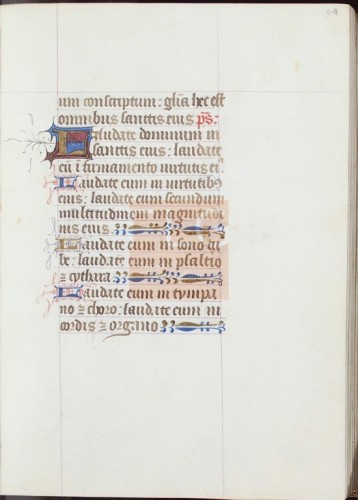 64
um conscriptum: gl̅ia hec est
omnibus sanctis eius ps̅:
Laudate dominum in
sanctis eius: laudate
eu̅ i̅ firmamento virtutis ei9
Laudate eum in virtutib9
eius: laudate eum secundum
multitudinem magnitudi
nis eius
Laudate eum in sono tu
be: laudate eum in psalt̅io
⁊ cythara
Laudate eum in tympa
no ⁊ choro: laudate eum in
cordis ⁊ organo